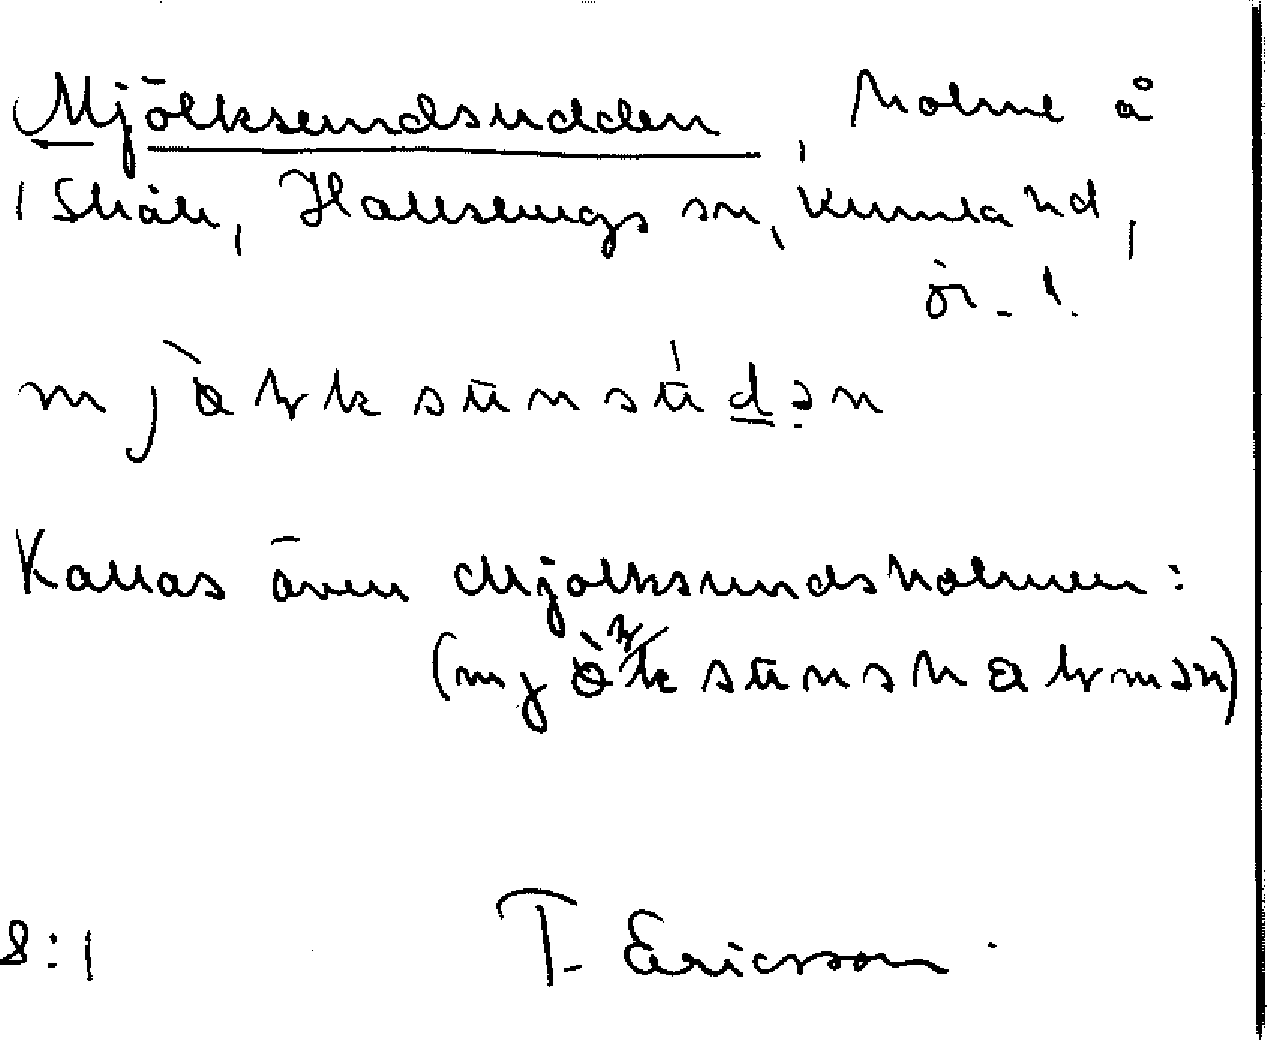 Mjölksundsudden, holme å
1 Skåle, Hallsbergs sn, Kumla hd,
ör. l.
mjȯ̀ɭksūnsúdən
Kallas även Mjölksundsholmen:
(mjö̀ɭksūnshaɭmən)
8:1 T. Ericsson